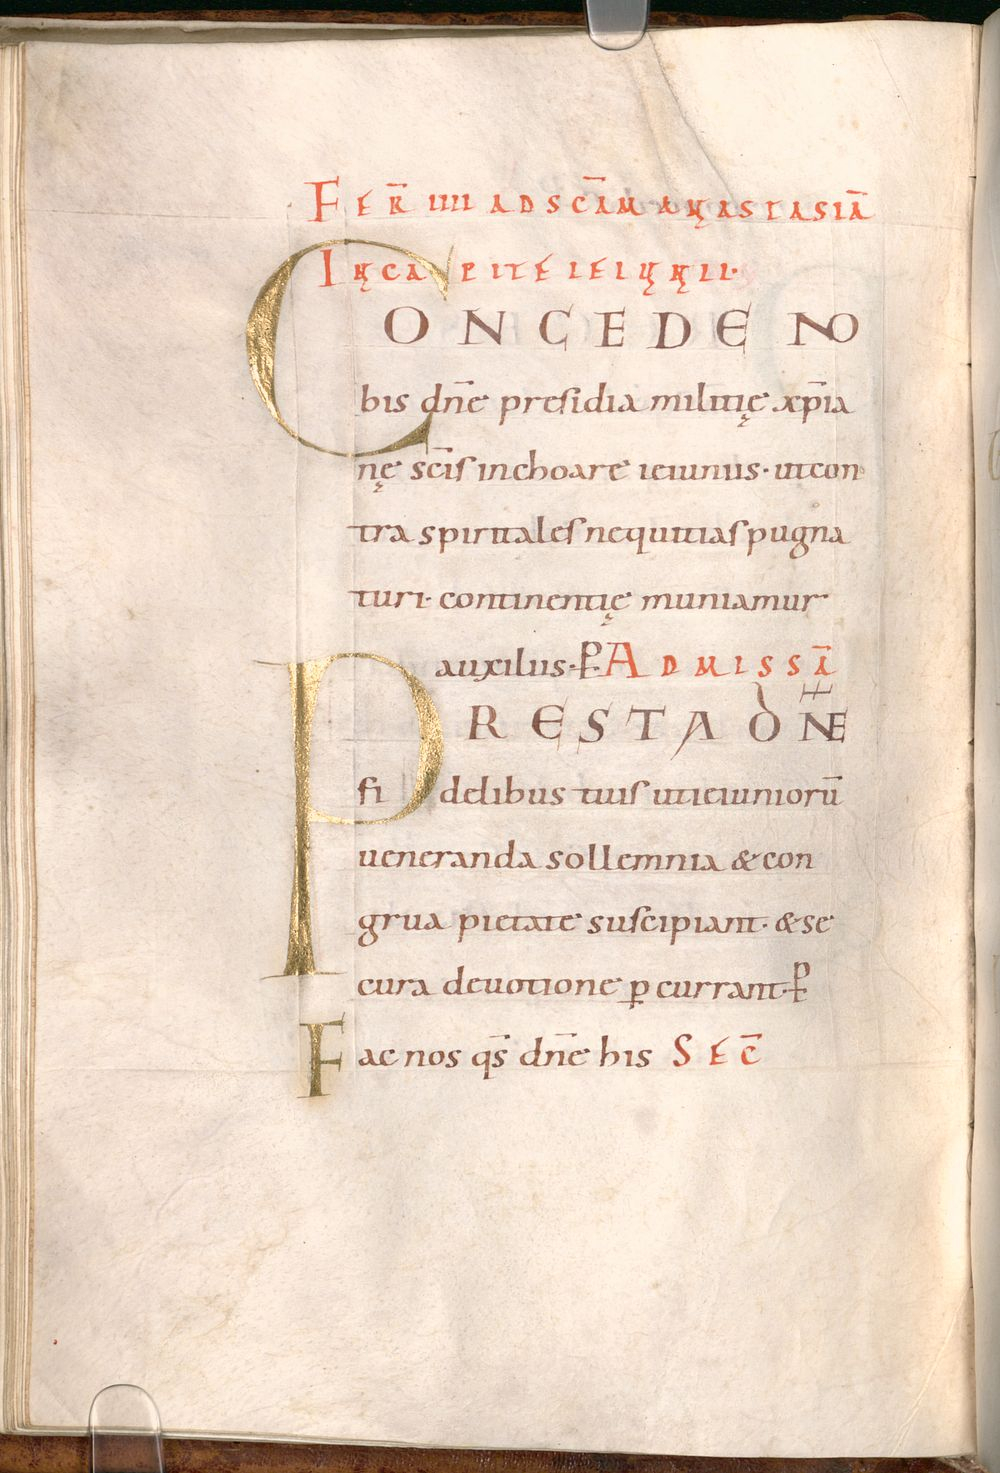 FER̄ IIII AD SC̄AM ANASTASIĀ
IN CAPITE IEIUNII·
CONCEDE NO
bis dn̄e presidia militię xp̄ia
nę sc̄is inchoare ieiuniis· ut con
tra spiritales nequitias pugna
turi· continentię muniamur
auxiliis· P̄ AD MISSĀ
PRESTA DN̄E
fidelibus tuis ut ieiuniorū
ueneranda sollemnia & con
grua pietate suscipiant· & se
cura deuotione ꝑcurrant· P̄
Fac nos qs̄ dn̄e his SEC̄